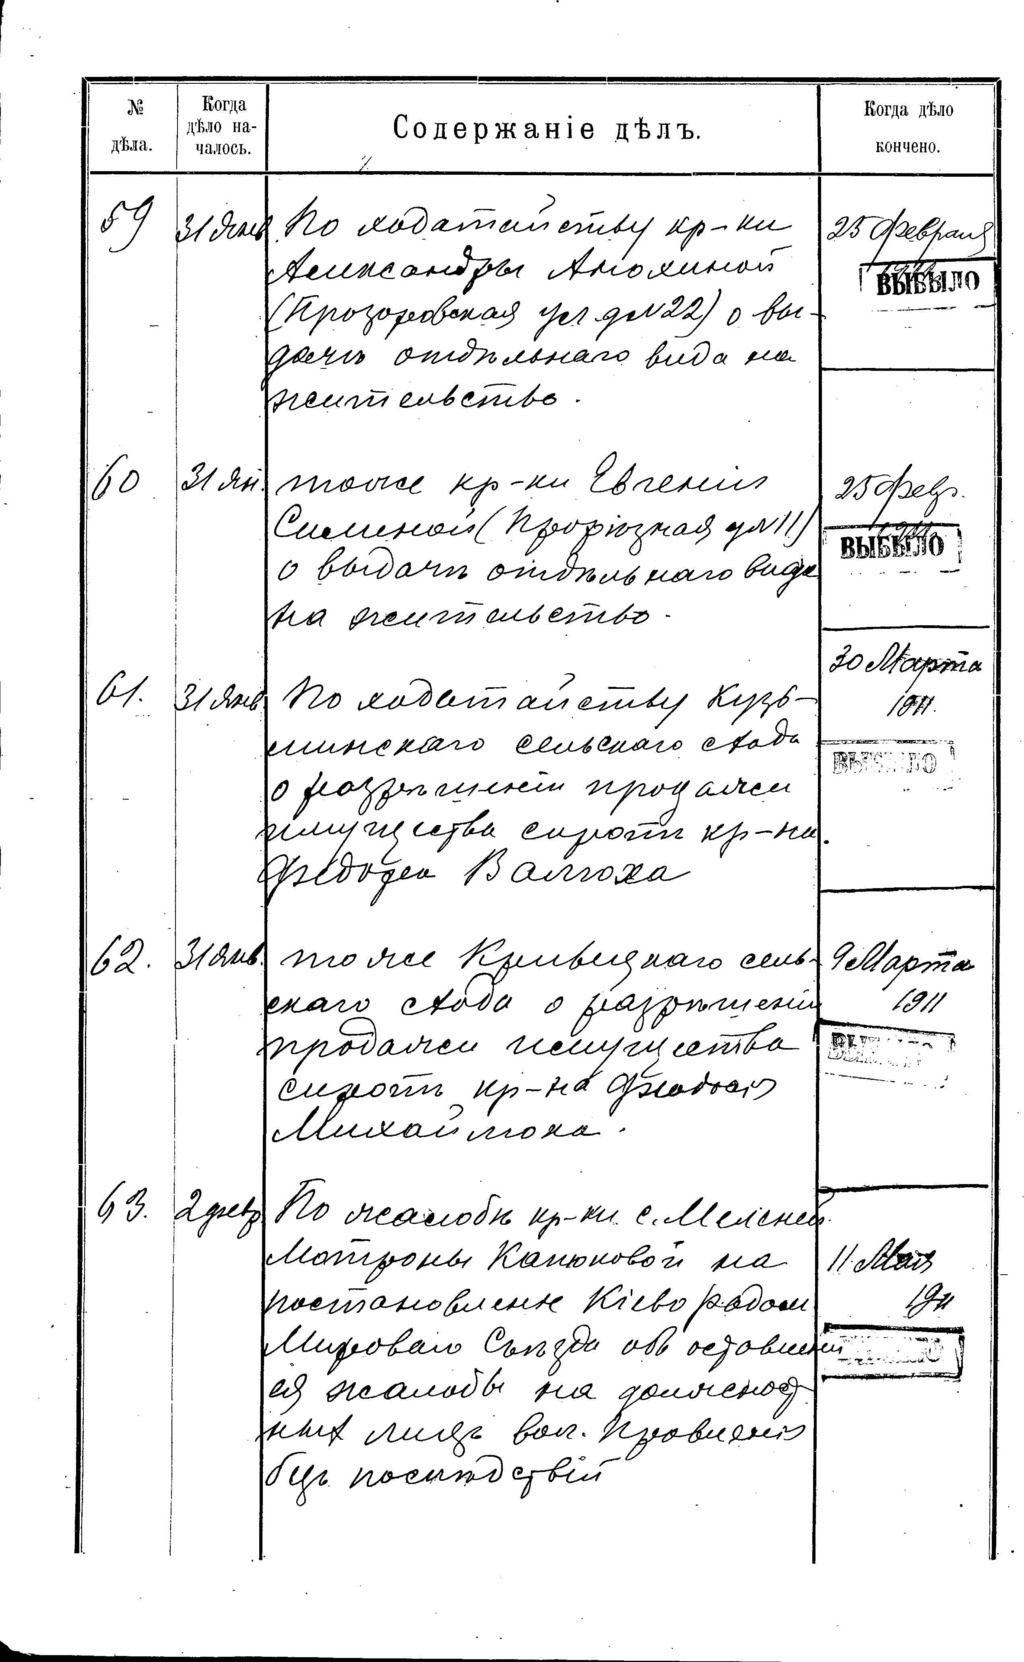 № дѣла.
Когда дѣло на-
чалось.
Содержаніе дѣлъ.
Когда дѣло
кончено.
59 31 Янв По ходатайству кр-ки 25 Февраля
Александры Анохиной 1911 ВЫБЫЛО
(Прозоровская ул д №22) о вы-
дачѣ отдѣльнаго вида на
жительство.
60 31 Ян. тоже кр-ки Евгеніи 25 февр.
(Прорѣзная д №11) 1911
о выдачѣ отдѣльнаго вида ВЫБЫЛО
на жительство.
30 Марта
61. 31 Янв По ходатайству Кузь- 1911.
минскаго сельскаго схода ВЫБЫЛО
о разрѣшеніи продажи
имущества сиротъ кр-на
Федора Валюха
62. 31 Янв. тоже сель- 9 Марта
скаго схода о разрѣшеніи 1911
продажи имущества ВЫБЫЛО
сиротъ кр-на Феодосія
Михайлюка.
63. 2 февр По жалобѣ кр-ки с.
Матроны Канюковой на 11 Мая
постановленіе Кіево Радом 1911
Мироваго Съѣзда объ оставлені
ея жалобы на должност
ныхъ лицъ вол. Правленія
безъ послѣдствій